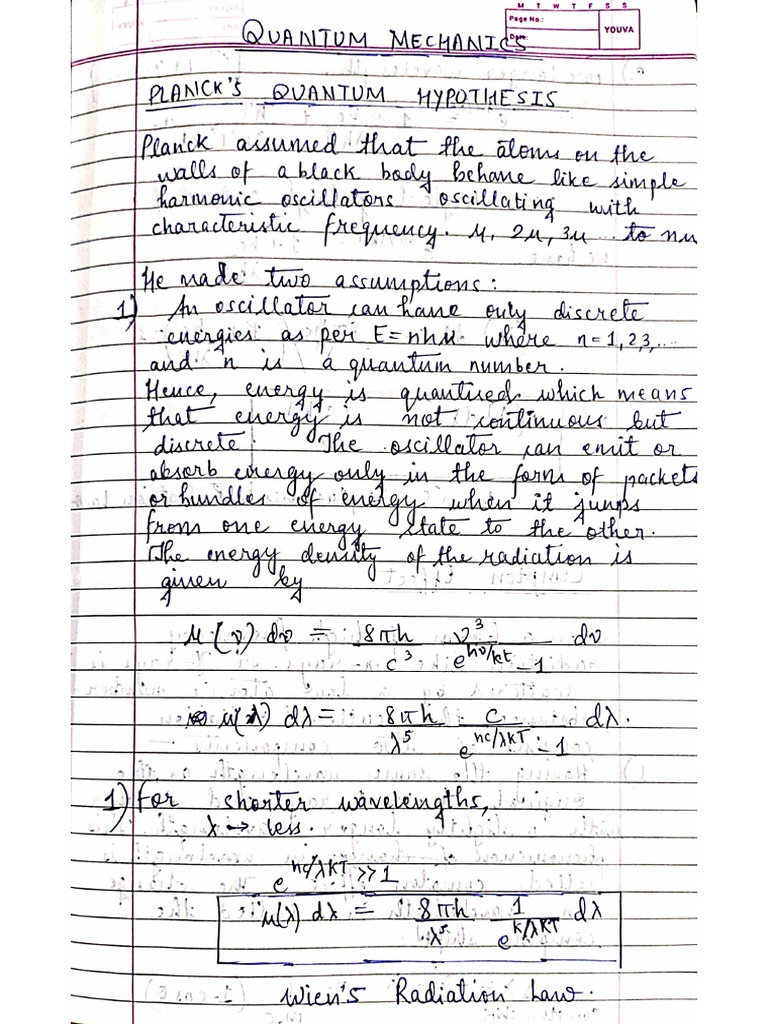 M T W T F S S
Page No.:
Date:
YOUVA
QUANTUM MECHANICS
PLANCK'S QUANTUM HYPOTHESIS
Planck assumed that the atoms on the
walls of a black body behave like simple
harmonic oscillators oscillating with
characteristic frequency. ν, 2ν, 3ν ... to nν
He made two assumptions:
1) An oscillator can have only discrete
energies as per E=nhν where n=1,2,3,...
and n is a quantum number.
Hence, energy is quantised which means
that energy is not continuous but
discrete. The oscillator can emit or
absorb energy only in the form of packets
or bundles of energy when it jumps
from one energy state to the other.
The energy density of the radiation is
given by
u(ν) dν = 8πh/c³ ν³/(e^(hν/kt) - 1) dν
u(λ) dλ = 8πh/λ⁵ c/(e^(hc/λKT) - 1) dλ.
1) for shorter wavelengths,
λ → less.
e^(hc/λKT) >> 1
u(λ) dλ = 8πh/λ⁵ 1/e^(k/λKT) dλ
Wien's Radiation Law.